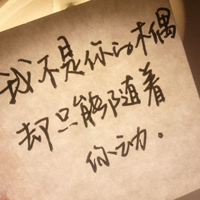 我不是你的木偶
却只能随着
你动。